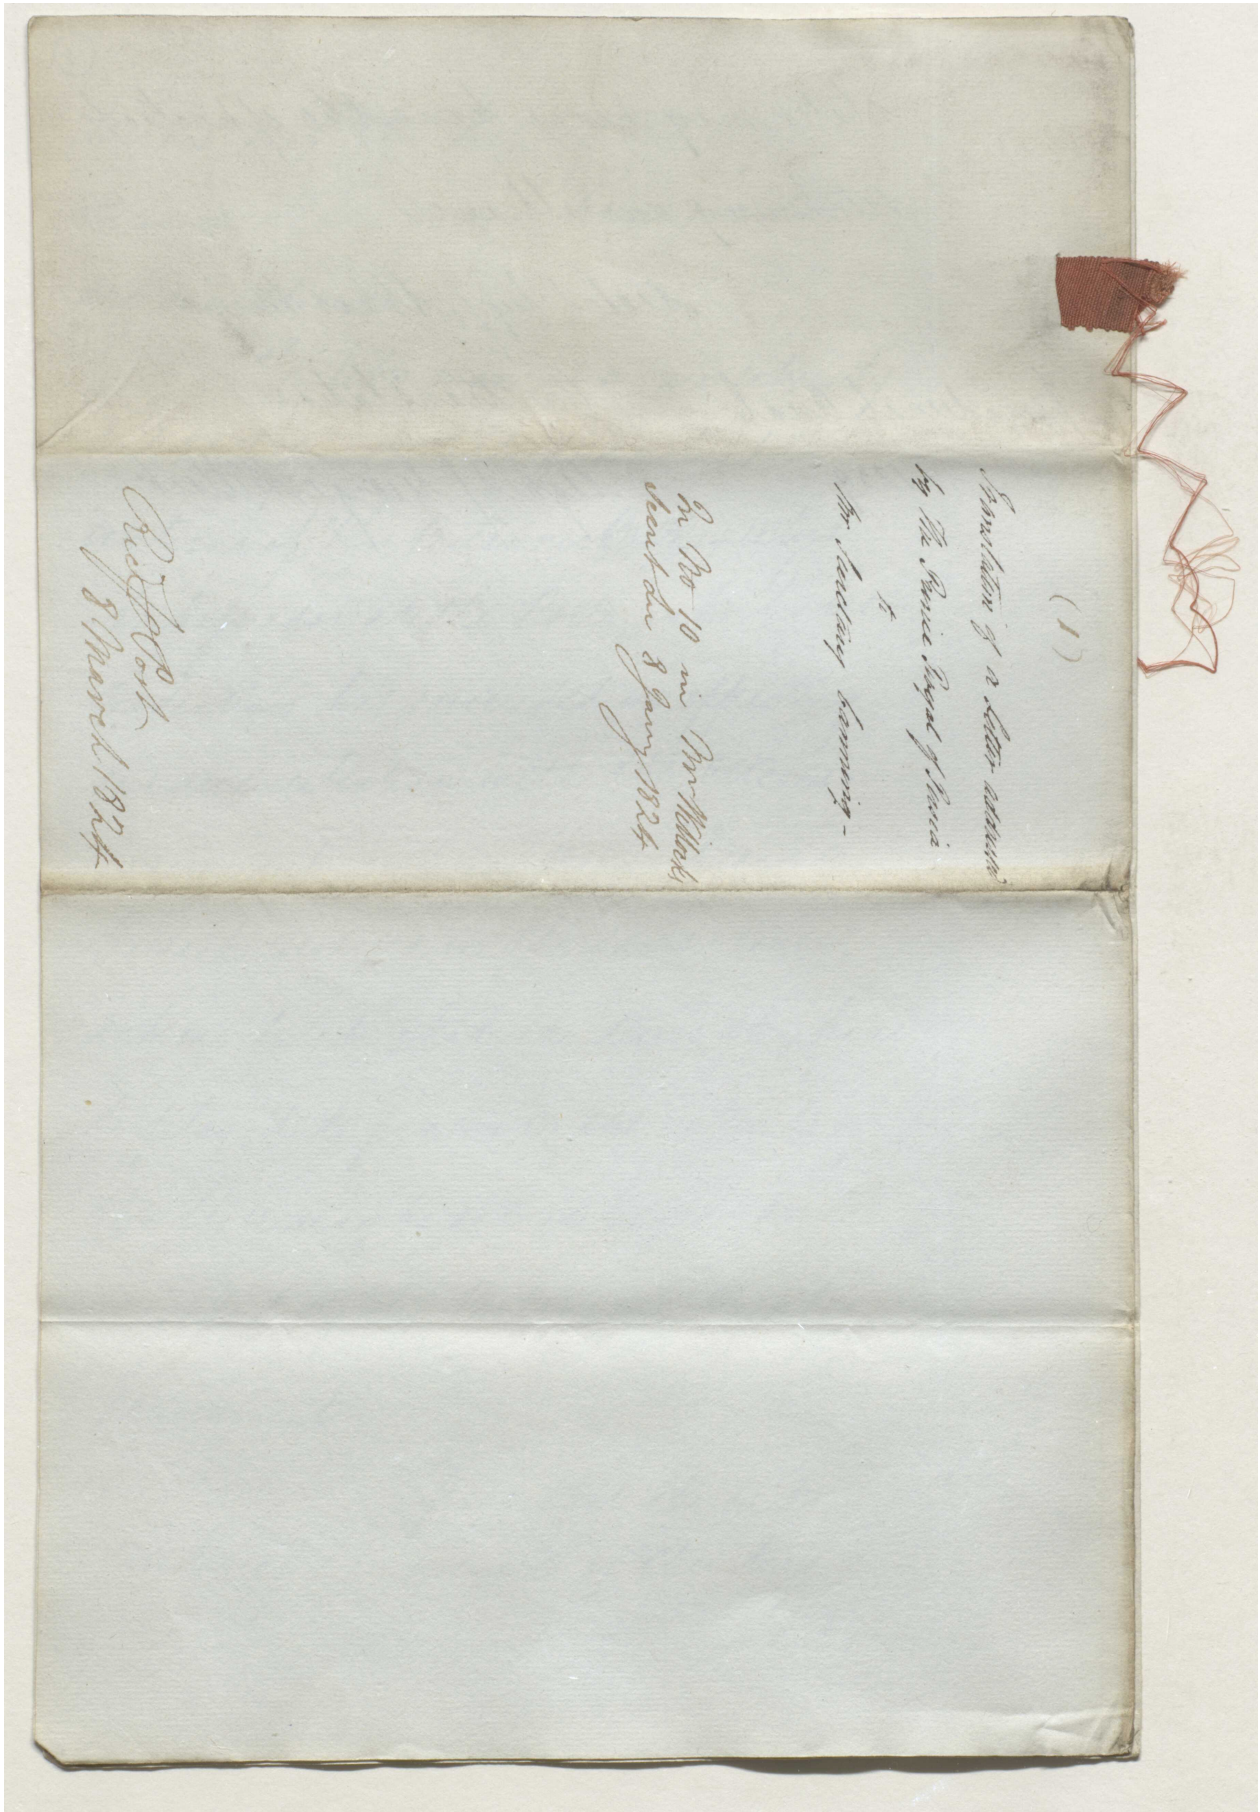 (1)
Translation of a Letter addressed
by The Prince Royal of Persia
to
Mr Secretary Canning -
In No 10 in Mr Willock's
Secret
8 Jany 1824
Recd
Post
8 March 1824